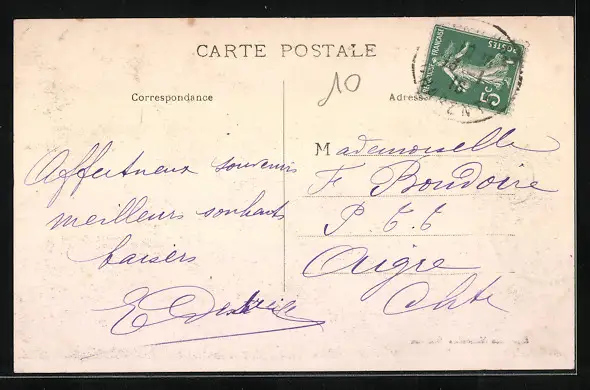 CARTE POSTALE
10
Correspondance
Adresse
Affectueux souvenirs
meilleurs souhaits
baisers
Mademoiselle
F Boudoire
P.t.t
Aigre
Chte
POSTES
5c